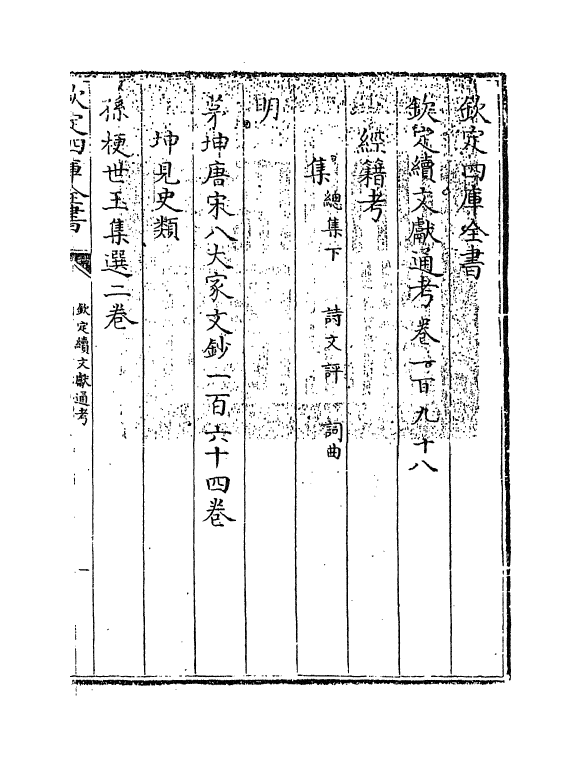 欽定四庫全書
欽定續文獻通考卷一百九十八
經籍考
集總集下 詩文評 詞曲
明
茅坤唐宋八大家文鈔一百六十四卷
坤見史類
孫梗世玉集選二卷
欽定四庫全書
欽定續文獻通考
一